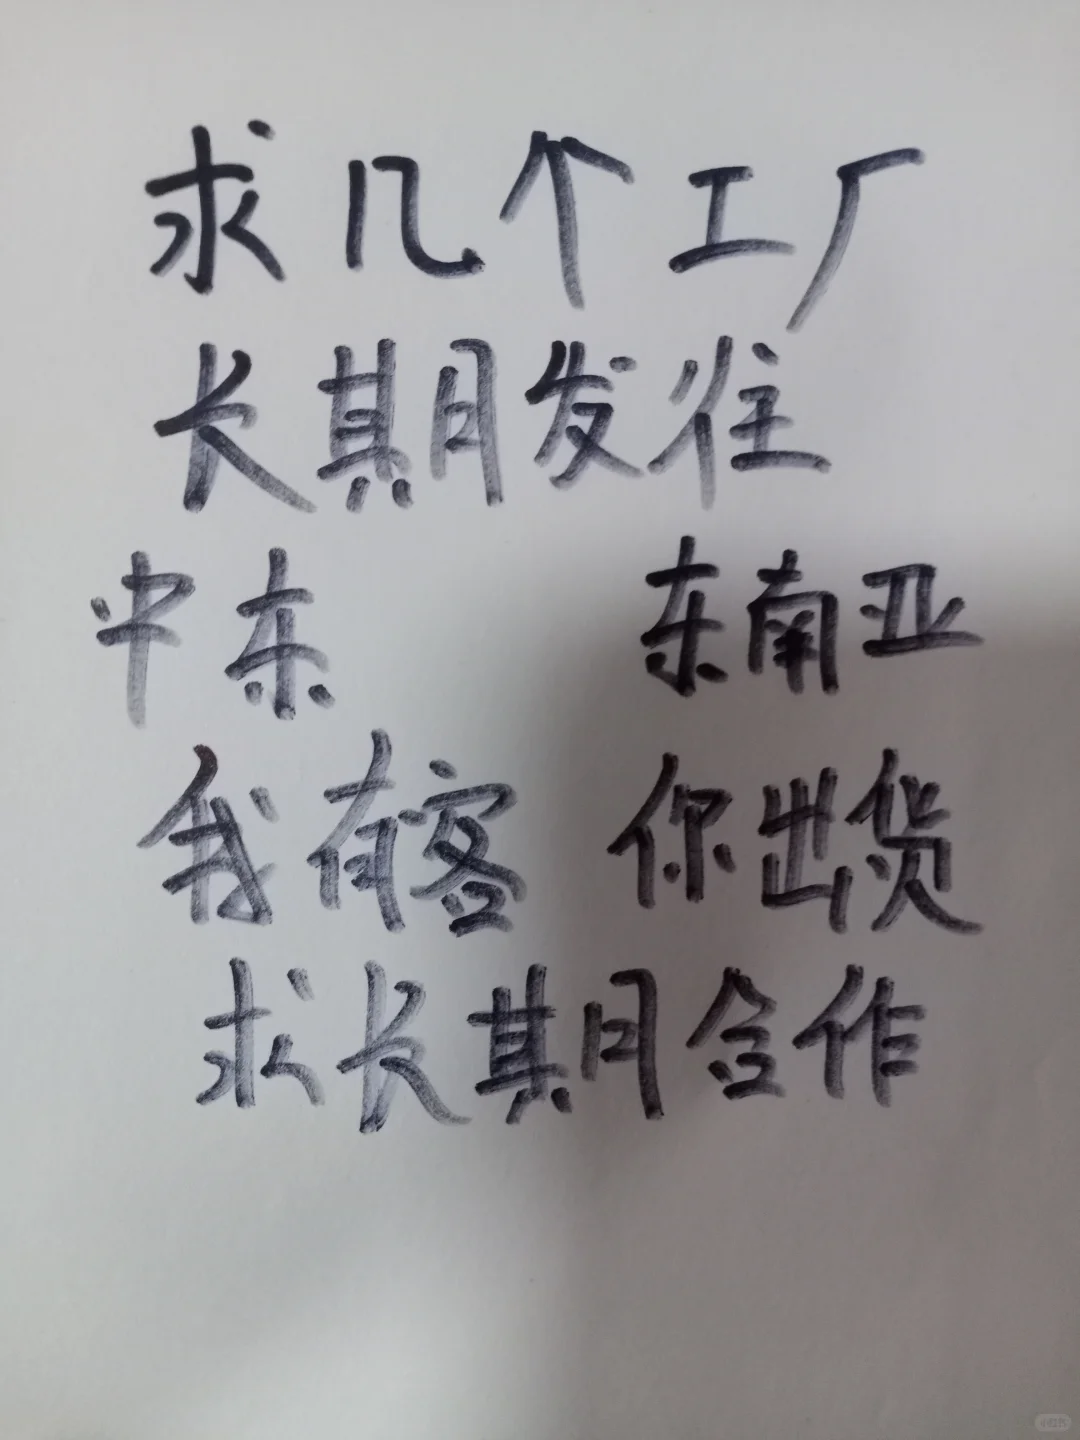 求几个工厂
长期发往
中东 东南亚
我有客 你出货
求长期合作
小红书